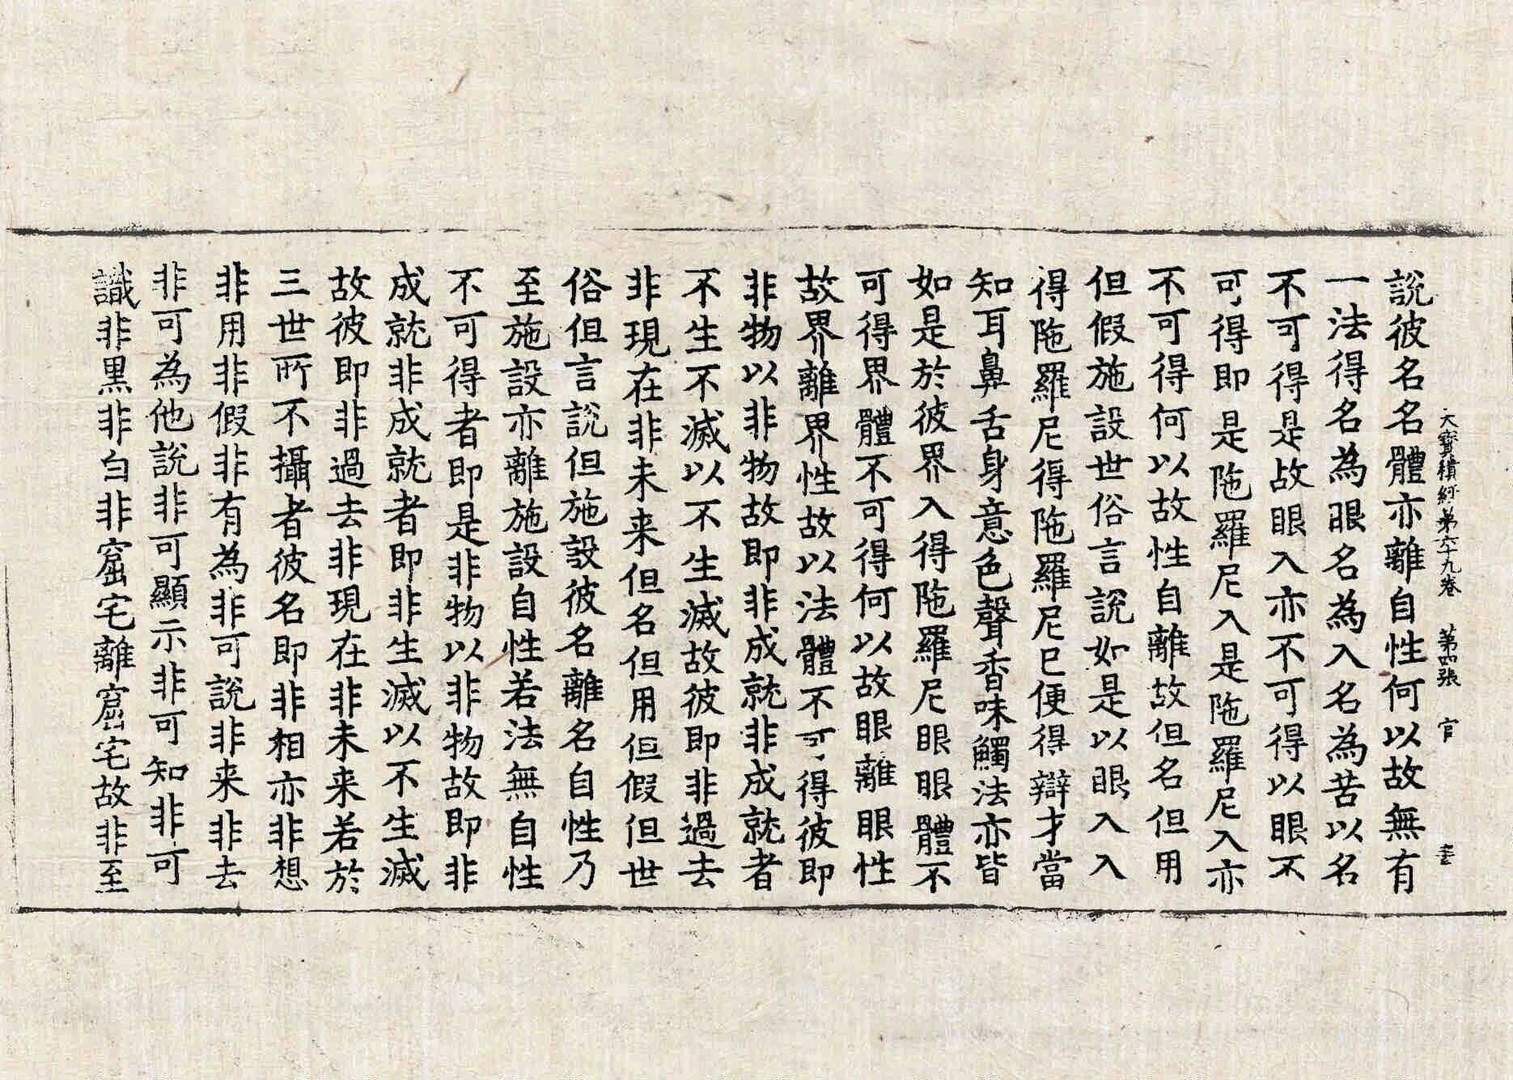 大寶積經第六十九卷　第四張　官
說彼名名體亦離自性何以故無有
一法得名為眼名為入名為苦以名
不可得是故眼入亦不可得以眼不
可得即是陁羅尼入是陁羅尼入亦
不可得何以故性自離故但名但用
但假施設世俗言說如是以眼入入
得陁羅尼得陁羅尼已便得辯才當
知耳鼻舌身意色聲香味觸法亦皆
如是於彼界入得陁羅尼眼眼體不
可得界體不可得何以故眼離眼性
故界離界性故以法體不可得彼即
非物以非物故即非成就非成就者
不生不滅以不生滅故彼即非過去
非現在非未来但名但用但假但世
俗但言說但施設彼名離名自性乃
至施設亦離施設自性若法無自性
不可得者即是非物以非物故即非
成就非成就者即非生滅以不生滅
故彼即非過去非現在非未来若於
三世所不攝者彼名即非相亦非想
非用非假非有為非可說非来非去
非可為他說非可顯示非可知非可
識非黒非白非窟宅離窟宅故非至